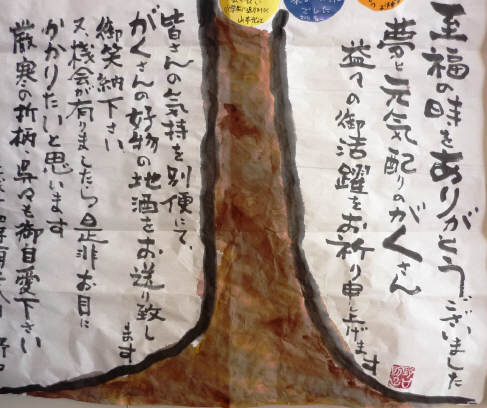 至福の時をありがとうございました
夢と元気配りのがくさん
益々の御活躍をお祈り申し上げます
皆さんの気持を別便にて、
がくさんの好物の地酒をお送り致します
御笑納下さい
又、機会が有りましたら、是非お目に
かかりたいと思います
厳寒の折柄、呉々も御自愛下さい